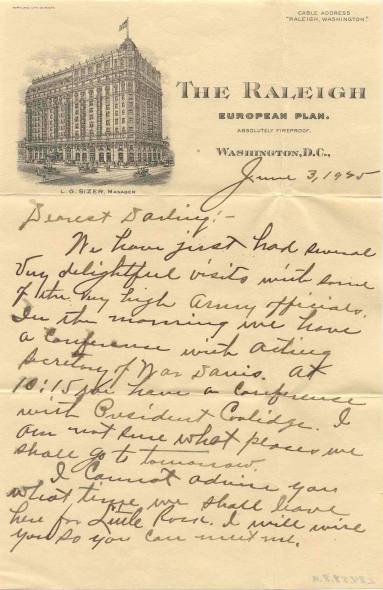 CABLE ADDRESS
"RALEIGH, WASHINGTON."
THE RALEIGH
EUROPEAN PLAN.
ABSOLUTELY FIREPROOF.
WASHINGTON, D.C.,
L. G. SIZER, MANAGER
June 3, 1925
Dearest Darling:-
We have just had several
very delightful visits with some
of the very high Army officials.
In the morning we have
a conference with acting
Secretary of War Davis. At
10:15 we have a conference
with President Coolidge. I
am not sure what places we
shall go to tomorrow.
I cannot advise you
what time we shall leave
here for Little Rock. I will wire
you so you can meet me.